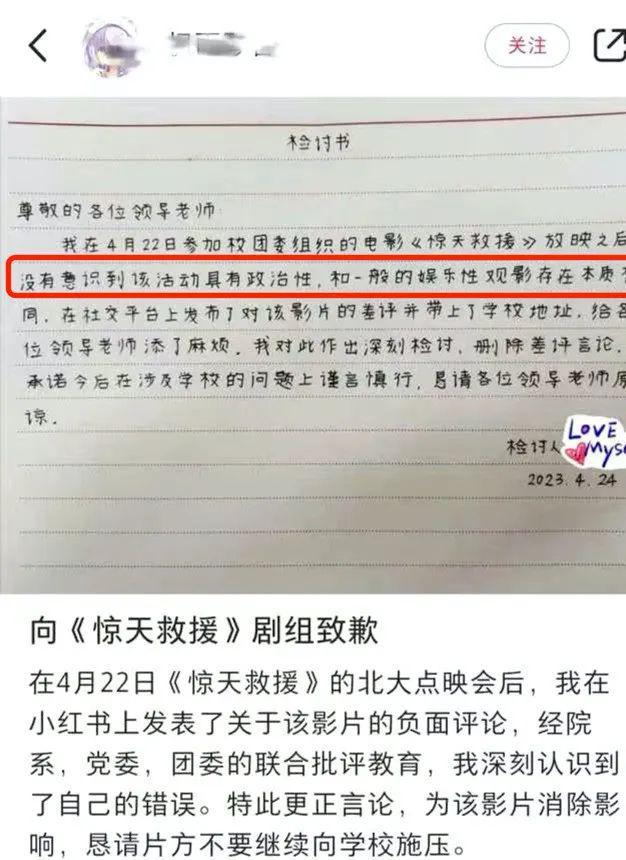 关注
检讨书
尊敬的各位领导老师
我在4月22日参加校团委组织的电影《惊天救援》放映之后
没有意识到该活动具有政治性，和一般的娱乐性观影存在本质
同，在社交平台上发布了对该影片的差评并带上了学校地址，给各
位领导老师添了麻烦。我对此作出深刻检讨，删除差评言论，
承诺今后在涉及学校的问题上谨言慎行，恳请各位领导老师原
谅。
检讨人
LOVE
Myse
2023.4.24
向《惊天救援》剧组致歉
在4月22日《惊天救援》的北大点映会后，我在
小红书上发表了关于该影片的负面评论，经院
系，党委，团委的联合批评教育，我深刻认识到
了自己的错误。特此更正言论，为该影片消除影
响，恳请片方不要继续向学校施压。